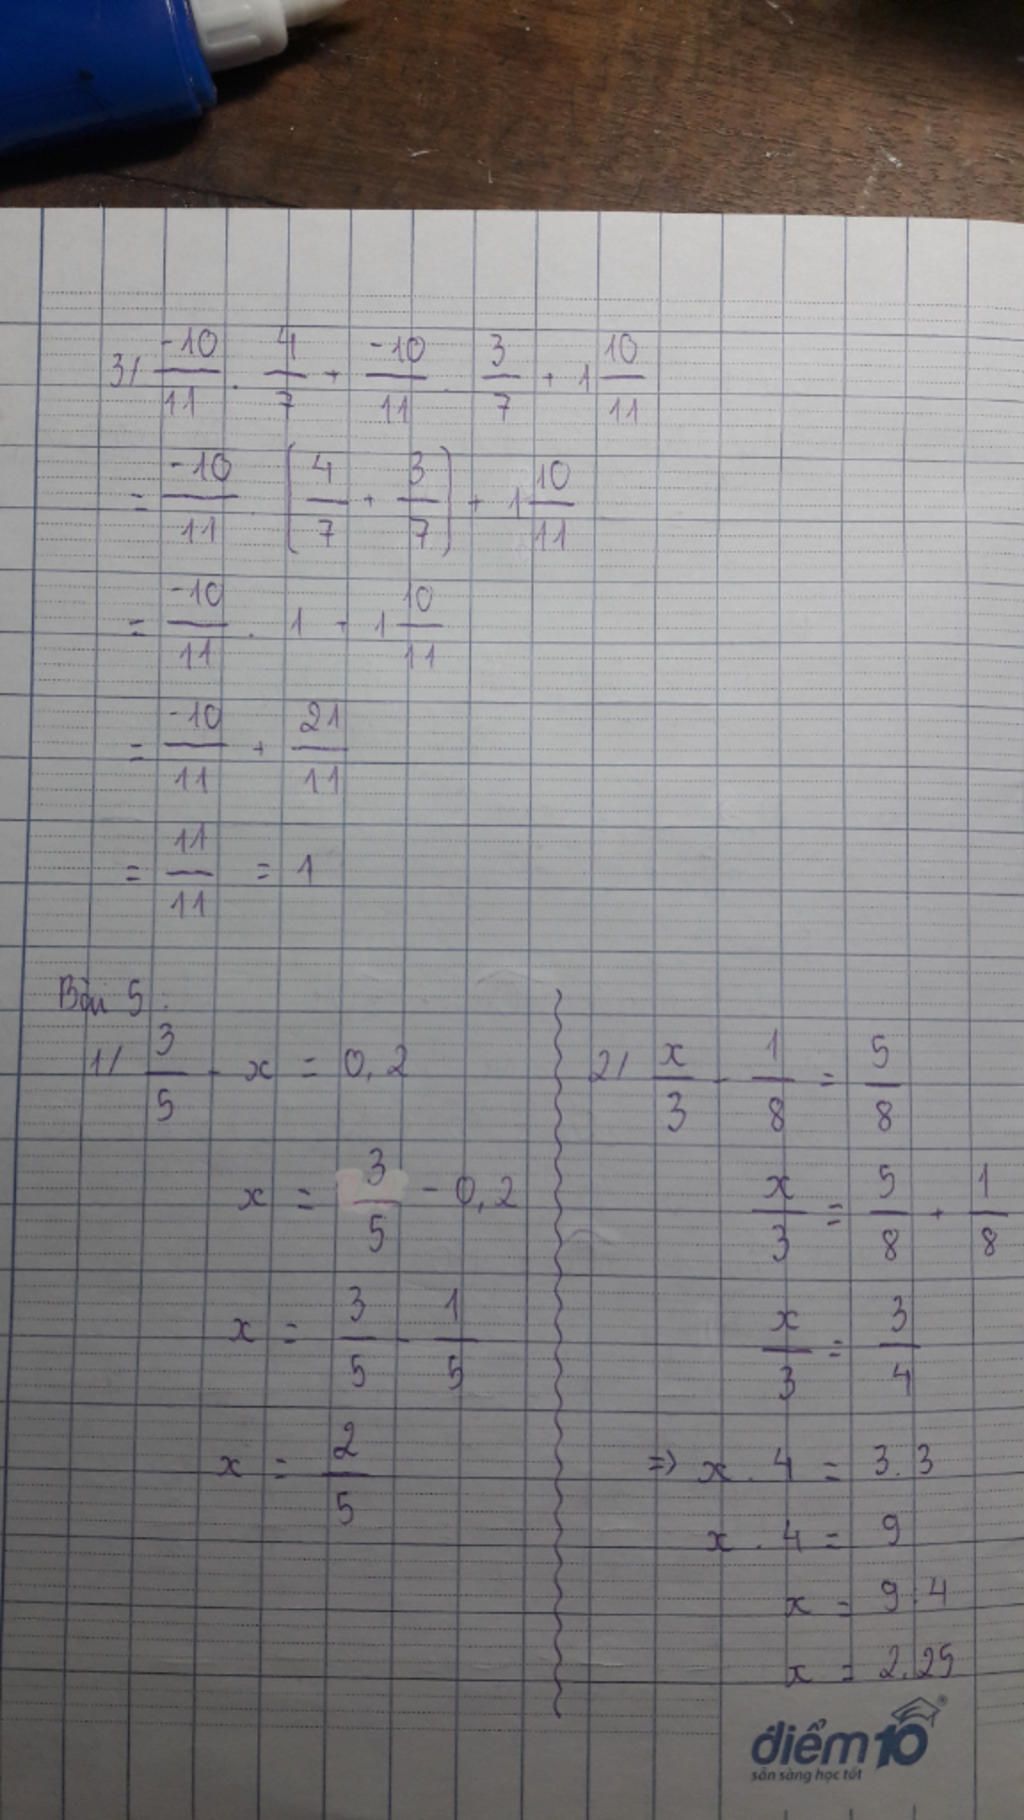 3/ -10/11 . 4/7 + -10/11 . 3/7 + 1 10/11
= -10/11 . (4/7 + 3/7) + 1 10/11
= -10/11 . 1 + 1 10/11
= -10/11 + 21/11
= 11/11 = 1
Bài 5:
1/ 3/5 - x = 0,2
x = 3/5 - 0,2
x = 3/5 - 1/5
x = 2/5
2/ x/3 - 1/8 = 5/8
x/3 = 5/8 + 1/8
x/3 = 3/4
=> x . 4 = 3.3
x . 4 = 9
x = 9:4
x = 2.25
điểm10®
sẵn sàng học tốt